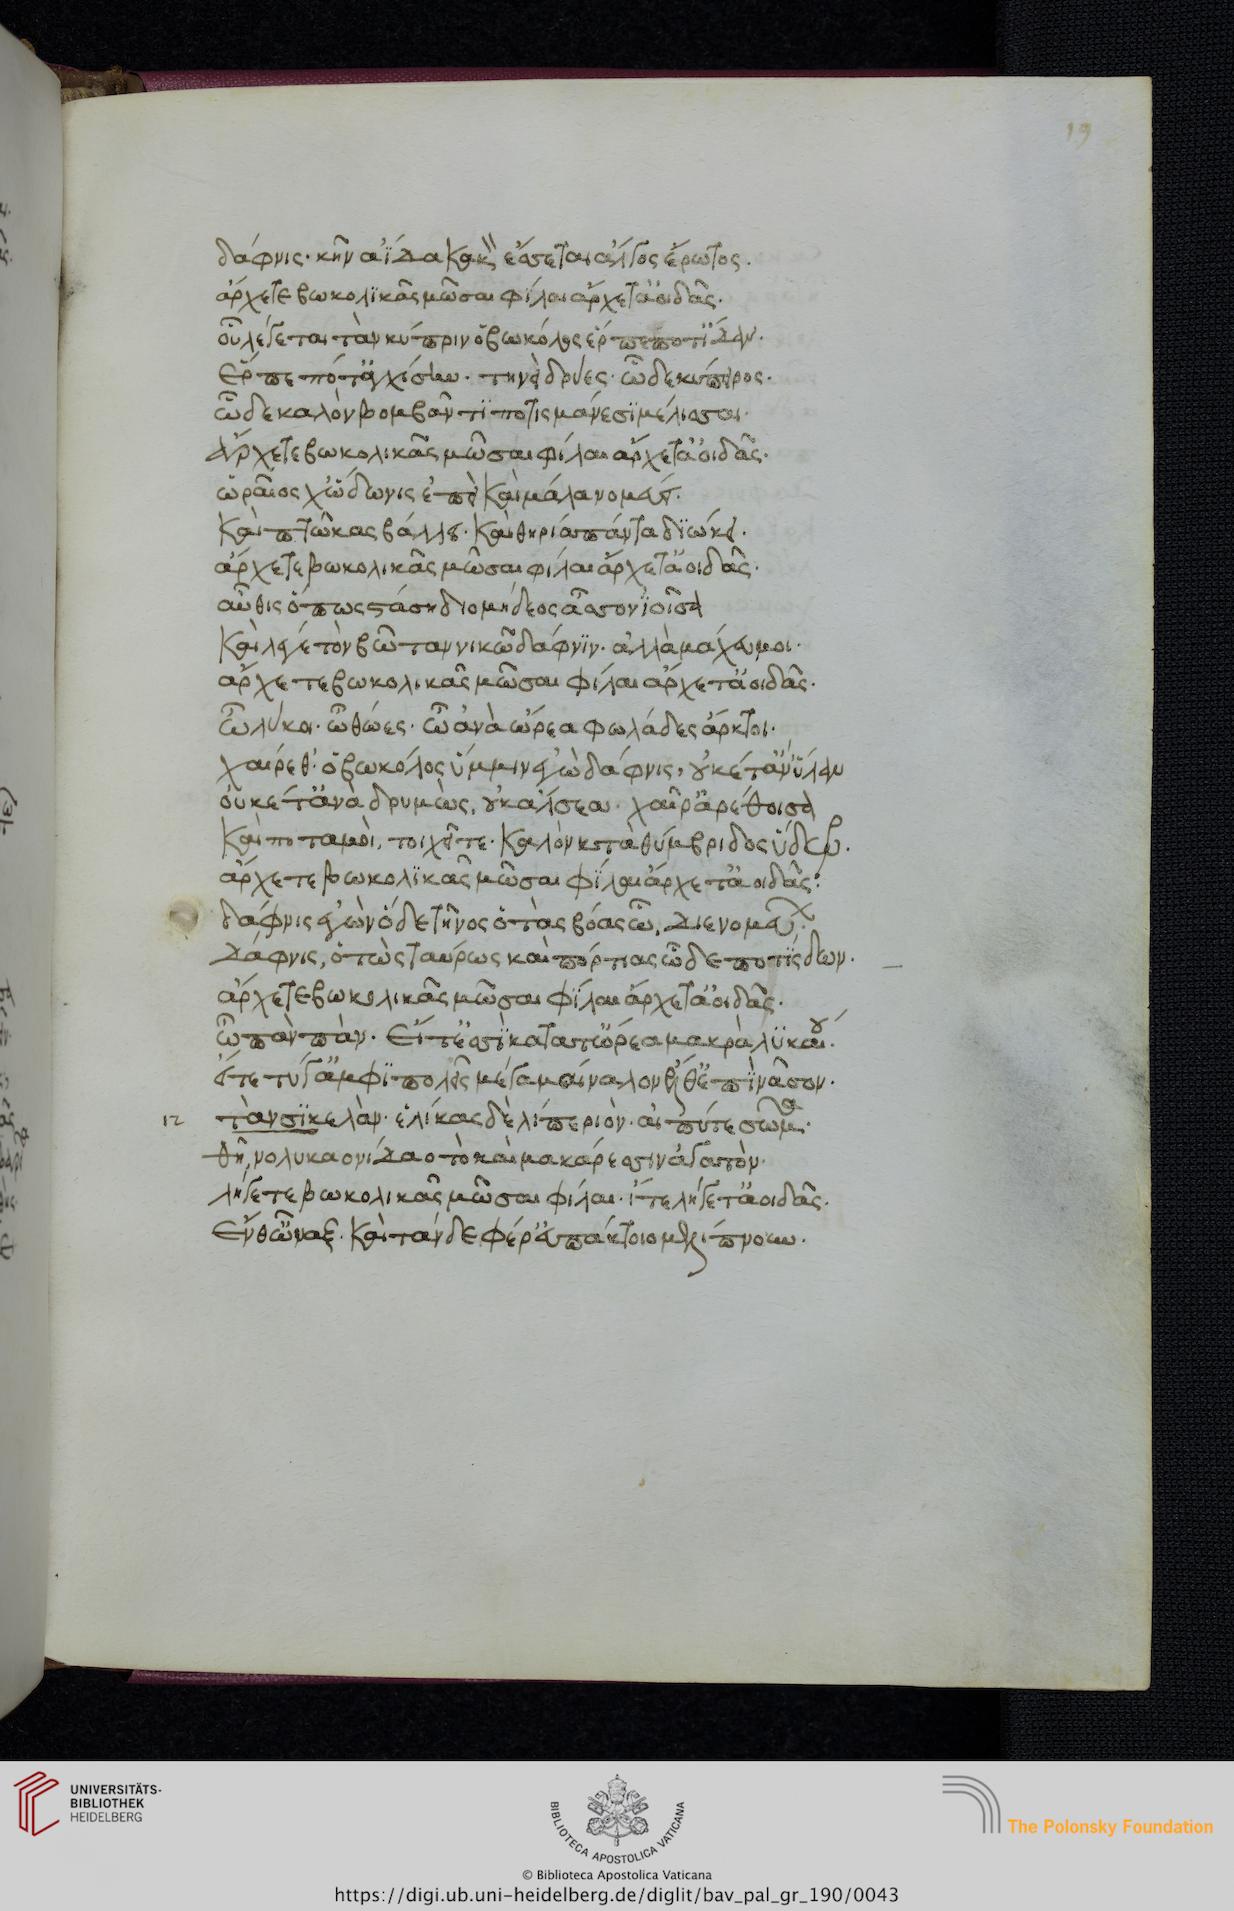 19
δάφνις· κἠν ἀΐδα κακὸν ἔσεται ἄλγος ἔρωτος.
ἄρχετε βωκολικᾶς μῶσαι φίλαι ἄρχετ' ἀοιδᾶς.
οὗ λέγεται τὰν κύπριν ὁ βωκόλος ἕρπε ποτ' ἴδαν.
ἕρπε πότ' ἀγχίσην. τηνεὶ δρύες. ὧδε κύπειρος.
ὧδε καλὸν βομβεῦντι ποτὶ σμάνεσι μέλισσαι.
ἄρχετε βωκολικᾶς μῶσαι φίλαι ἄρχετ' ἀοιδᾶς.
ὡραῖος χὤδωνις ἐπεὶ καὶ μάλα νομεύει.
καὶ πτῶκας βάλλει. καὶ θηρία πάντα διώκει.
ἄρχετε βωκολικᾶς μῶσαι φίλαι ἄρχετ' ἀοιδᾶς.
αὖθις ὅπως στάσῃ διομήδεος ἆσσον ἰοῖσα
καὶ λέγε τὸν βώταν νικῶ δάφνιν. ἀλλὰ μάχευ μοι.
ἄρχετε βωκολικᾶς μῶσαι φίλαι ἄρχετ' ἀοιδᾶς.
ὦ λύκοι. ὦ θῶες. ὦ ἀν' ὤρεα φωλάδες ἄρκτοι.
χαίρεθ' ὁ βωκόλος ὔμμιν ἐγὼ δάφνις, οὐκέτ' ἀν' ὕλαν
οὐκέτ' ἀνὰ δρυμὼς, οὐκ ἄλσεα. χαῖρ' ἀρέθοισα
καὶ ποταμοὶ, τοὶ χεῖτε καλὸν κατὰ θύμβριδος ὕδωρ.
ἄρχετε βωκολικᾶς μῶσαι φίλαι ἄρχετ' ἀοιδᾶς:
δάφνις ἐγὼν ὅδε τῆνος ὁ τὰς βόας ὧδε νομεύων.
δάφνις, ὁ τὼς ταύρως καὶ πόρτιας ὧδε ποτίσδων.
ἄρχετε βωκολικᾶς μῶσαι φίλαι ἄρχετ' ἀοιδᾶς.
ὦ πὰν πὰν. εἴτ' ἐσσὶ κατ' ὤρεα μακρὰ λυκαίου.
εἴτε τύγ' ἀμφιπολεῖς μέγα μαίναλον ἔνθ' ἐπὶ νᾶσον.
12 τὰν σικελὰν. ἑλίκας δὲ λίπε ῥίον. αἰπύ τε σῶμα.
τῆνο λυκαονίδαο τὸ καὶ μακάρεσσιν ἀγατὸν.
λήγετε βωκολικᾶς μῶσαι φίλαι. ἴτε λήγετ' ἀοιδᾶς.
ἔνθ' ὦναξ. καὶ τάνδε φέρ' εὐπάκτοιο μελίπνουν.
UNIVERSITÄTS-
BIBLIOTHEK
HEIDELBERG
BIBLIOTECA APOSTOLICA VATICANA
The Polonsky Foundation
© Biblioteca Apostolica Vaticana
https://digi.ub.uni-heidelberg.de/diglit/bav_pal_gr_190/0043